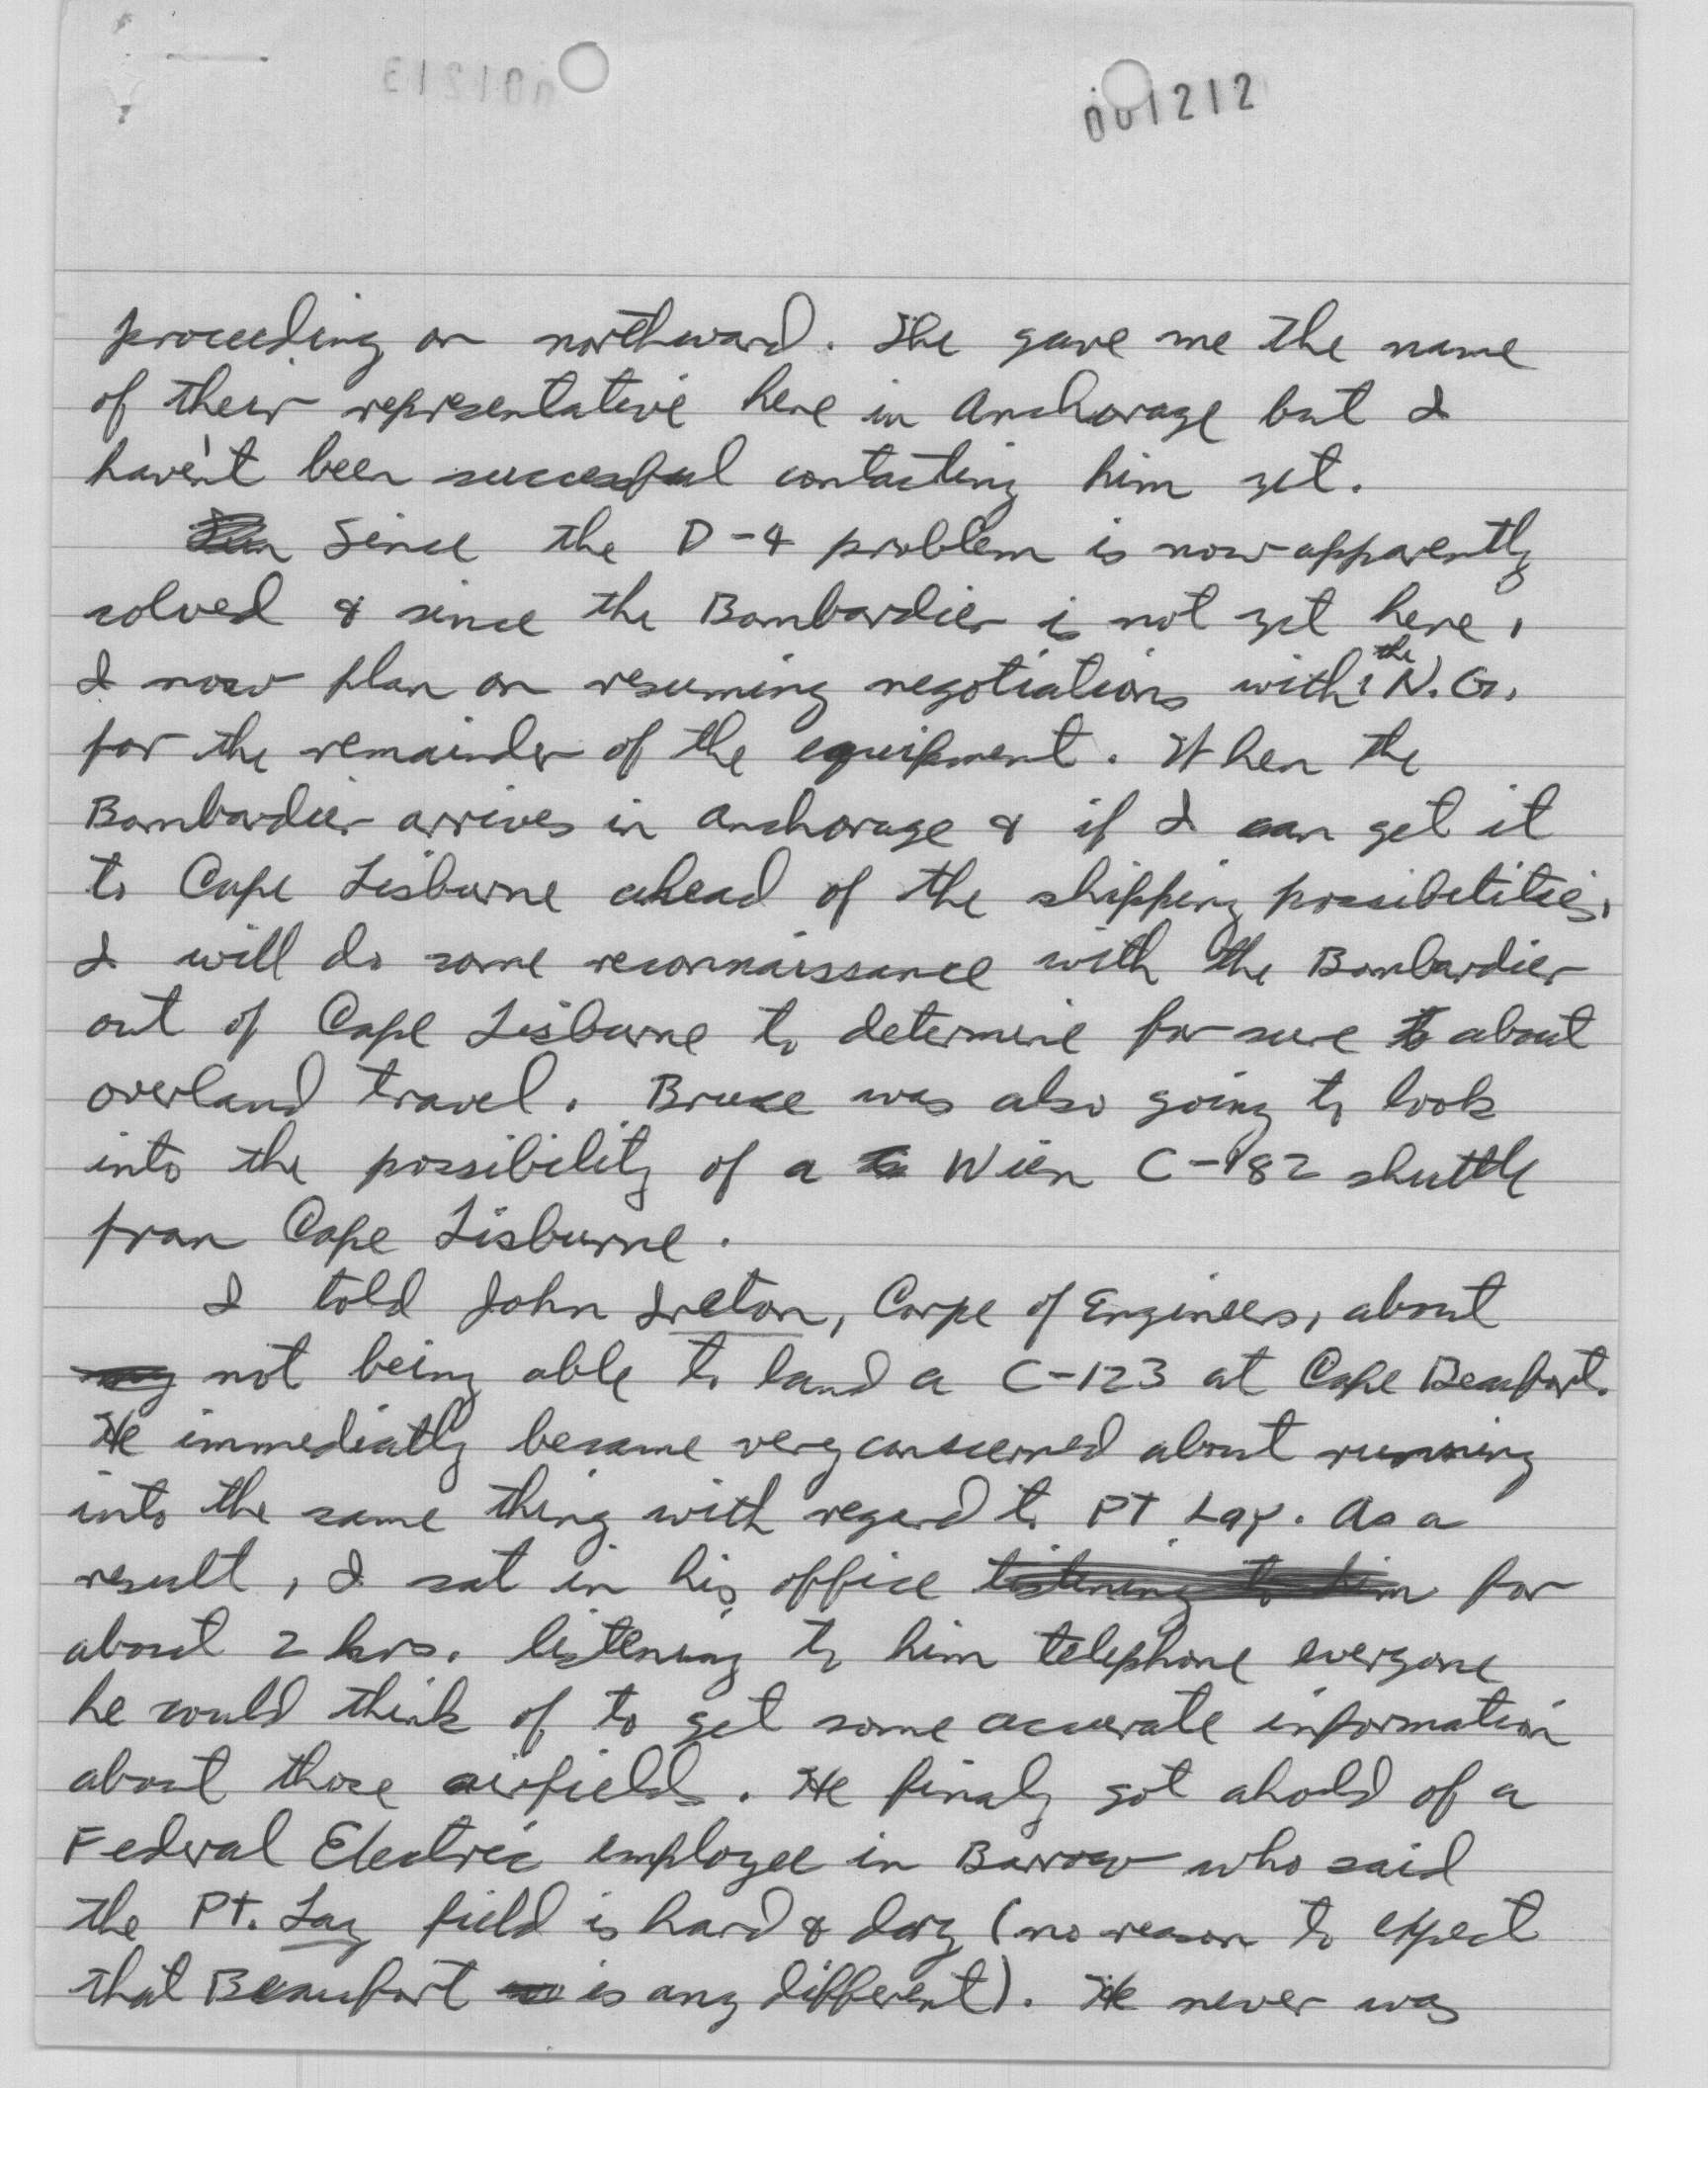 001212
proceeding on northward. She gave me the name
of their representative here in Anchorage but I
haven't been successful contacting him yet.
Since the D-4 problem is now apparently
solved & since the Bombardier is not yet here,
I now plan on resuming negotiations with the N.G.
for the remainder of the equipment. When the
Bombardier arrives in Anchorage & if I can get it
to Cape Lisburne ahead of the shipping possibilities,
I will do some reconnaissance with the Bombardier
out of Cape Lisburne to determine for sure about
overland travel. Bruce was also going to look
into the possibility of a Wien C-82 shuttle
from Cape Lisburne.
I told John Ireton, Corps of Engineers, about
not being able to land a C-123 at Cape Beaufort.
He immediatly became very concerned about running
into the same thing with regard to PT Lay. As a
result, I sat in his office listening to him for
about 2 hrs. listening to him telephone everyone
he could think of to get some accurate information
about those airfields. He finaly got ahold of a
Federal Electric employee in Barrow who said
the Pt. Lay field is hard & dry (no reason to expect
that Beaufort is any different). He never was